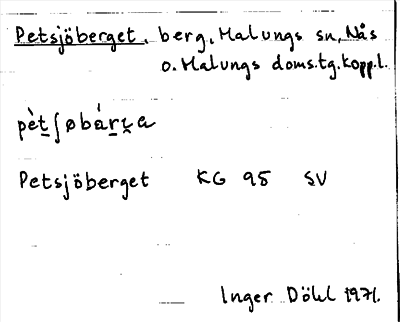 Petsjöberget, berg, Malungs sn, Nås
o. Malungs doms.tg. kopp.l.
pèt̠ʃøbár̠ɪ̯a
Petsjöberget KG 95 SV
Inger Döhl 1971.